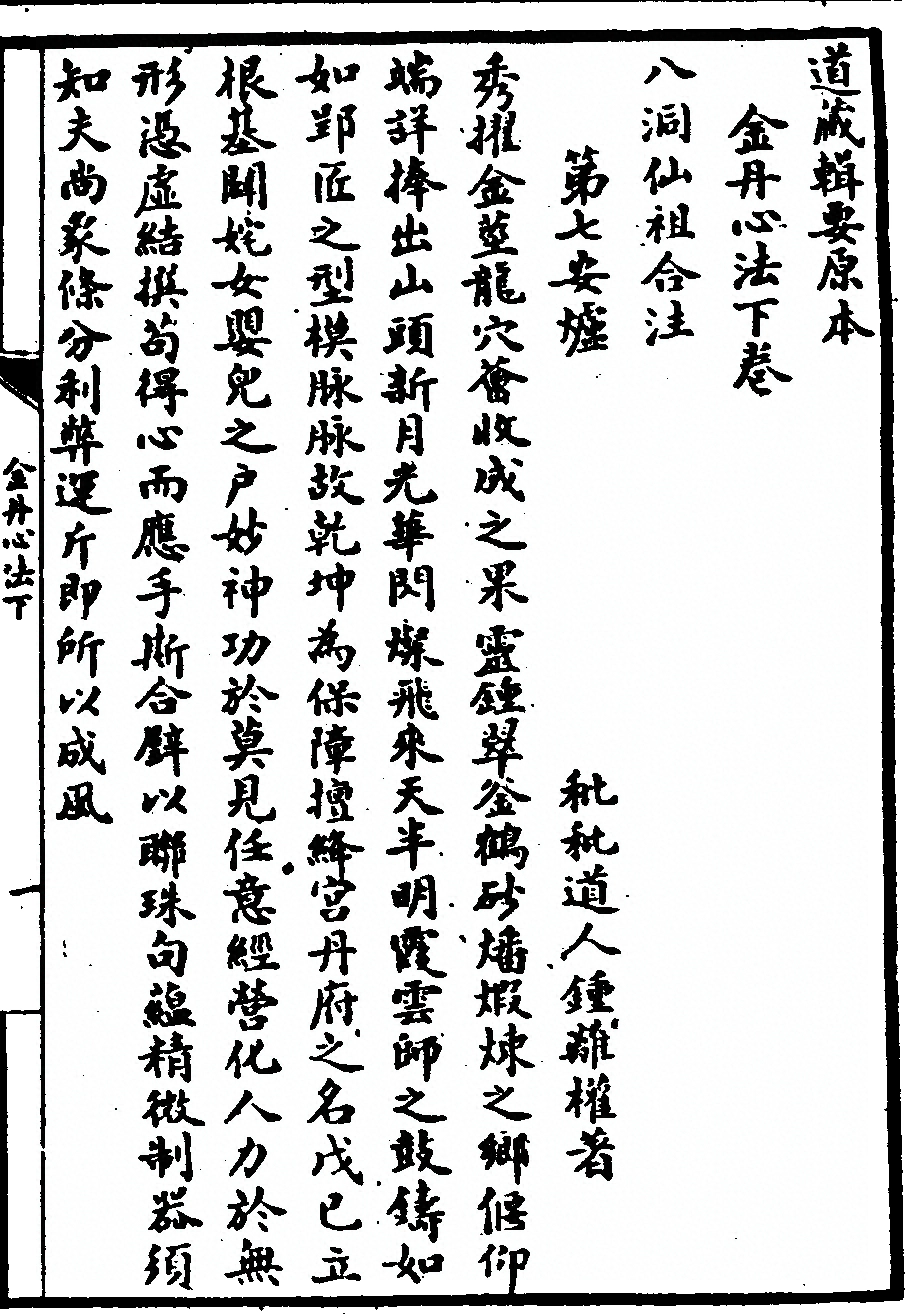 道藏輯要原本
金丹心法下卷
八洞仙祖合注
第七安爐　秕秕道人鍾離權著
秀擢金莖龍穴薈收成之果靈鍾翠釜鶴砂燔煅煉之鄉偃仰
端詳捧出山頭新月光華閃爍飛來天半明霞雲師之鼓鑄如
如郢匠之型模脉脉故乾坤為保障擅絳宮丹府之名戊己立
根基開姹女嬰兒之户妙神功於莫見任意經營化人力於無
形憑虛結撰苟得心而應手斯合璧以聯珠句蘊精微制器須
知夫尚象條分利弊運斤即所以成風
金丹心法下
一